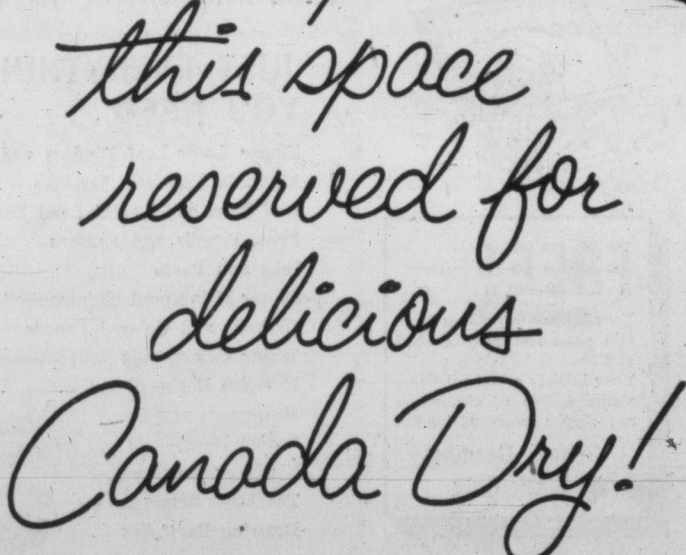 this space
reserved for
delicious
Canada Dry!